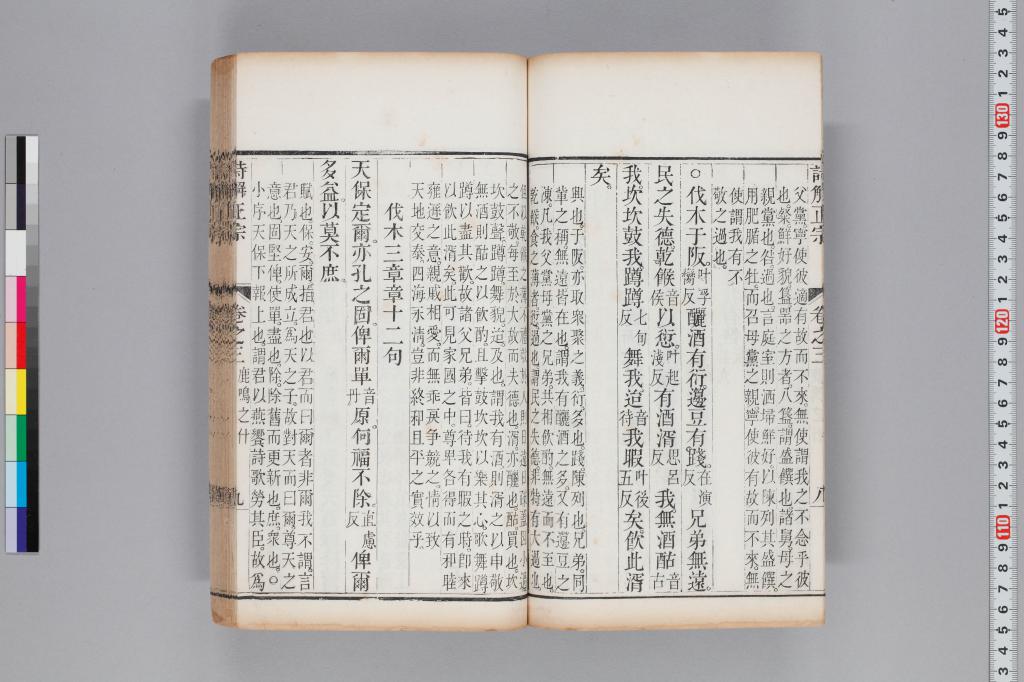 父黨寧使彼適有故而不來無使謂我之不念乎彼
也粲鮮好貌簋器之方者八簋謂盛饌也諸舅母之
親黨也咎過也言庭室則洒埽鮮好以陳列其盛饌
用肥腯之牡而召母黨之親寧使彼有故而不來無
使謂我有不
敬之過也
○伐木于阪叶孚臠反釃酒有衍籩豆有踐在演反兄弟無遠
民之失德乾餱音侯以愆叶起淺反有酒湑思呂反我無酒酤音古
我坎坎鼓我蹲蹲七旬反舞我迨音待我暇叶後五反矣飲此湑
矣
興也于阪亦取衆聚之義衍多也踐陳列也兄弟同
輩之稱無遠皆在也謂我有釃酒之多又有籩豆之
陳凡我父黨母黨之兄弟其相飲酌無遠而不至也
之不敬每至於大故而失德也湑亦釃也酤買也坎
坎鼓聲蹲蹲舞貌迨及也謂我有酒則湑之以申敬
無酒則酤之以飲酌且擊鼓坎坎以樂其心歌舞蹲
蹲以盡其歡故諸父兄弟皆曰待我有暇之時即來
以飲此湑矣此可見家國之中尊卑各得而有和睦
雍遜之意親戚相愛而無乖戾爭競之情以致
天地交泰四海永清豈非終和且平之實效乎
伐木三章章十二句
天保定爾亦孔之固俾爾單音丹厚何福不除直慮反俾爾
多益以莫不庶
賦也保安爾指君也以君而曰爾者非爾我不謂言
君乃天之所成立爲天之子故對天而曰爾尊天之
意也固堅俾使單盡也除除舊而更新也庶衆也○
小序天保下報上也謂君以燕饗詩歌勞其臣故爲
詩解正宗
卷之三
鹿鳴之什
九